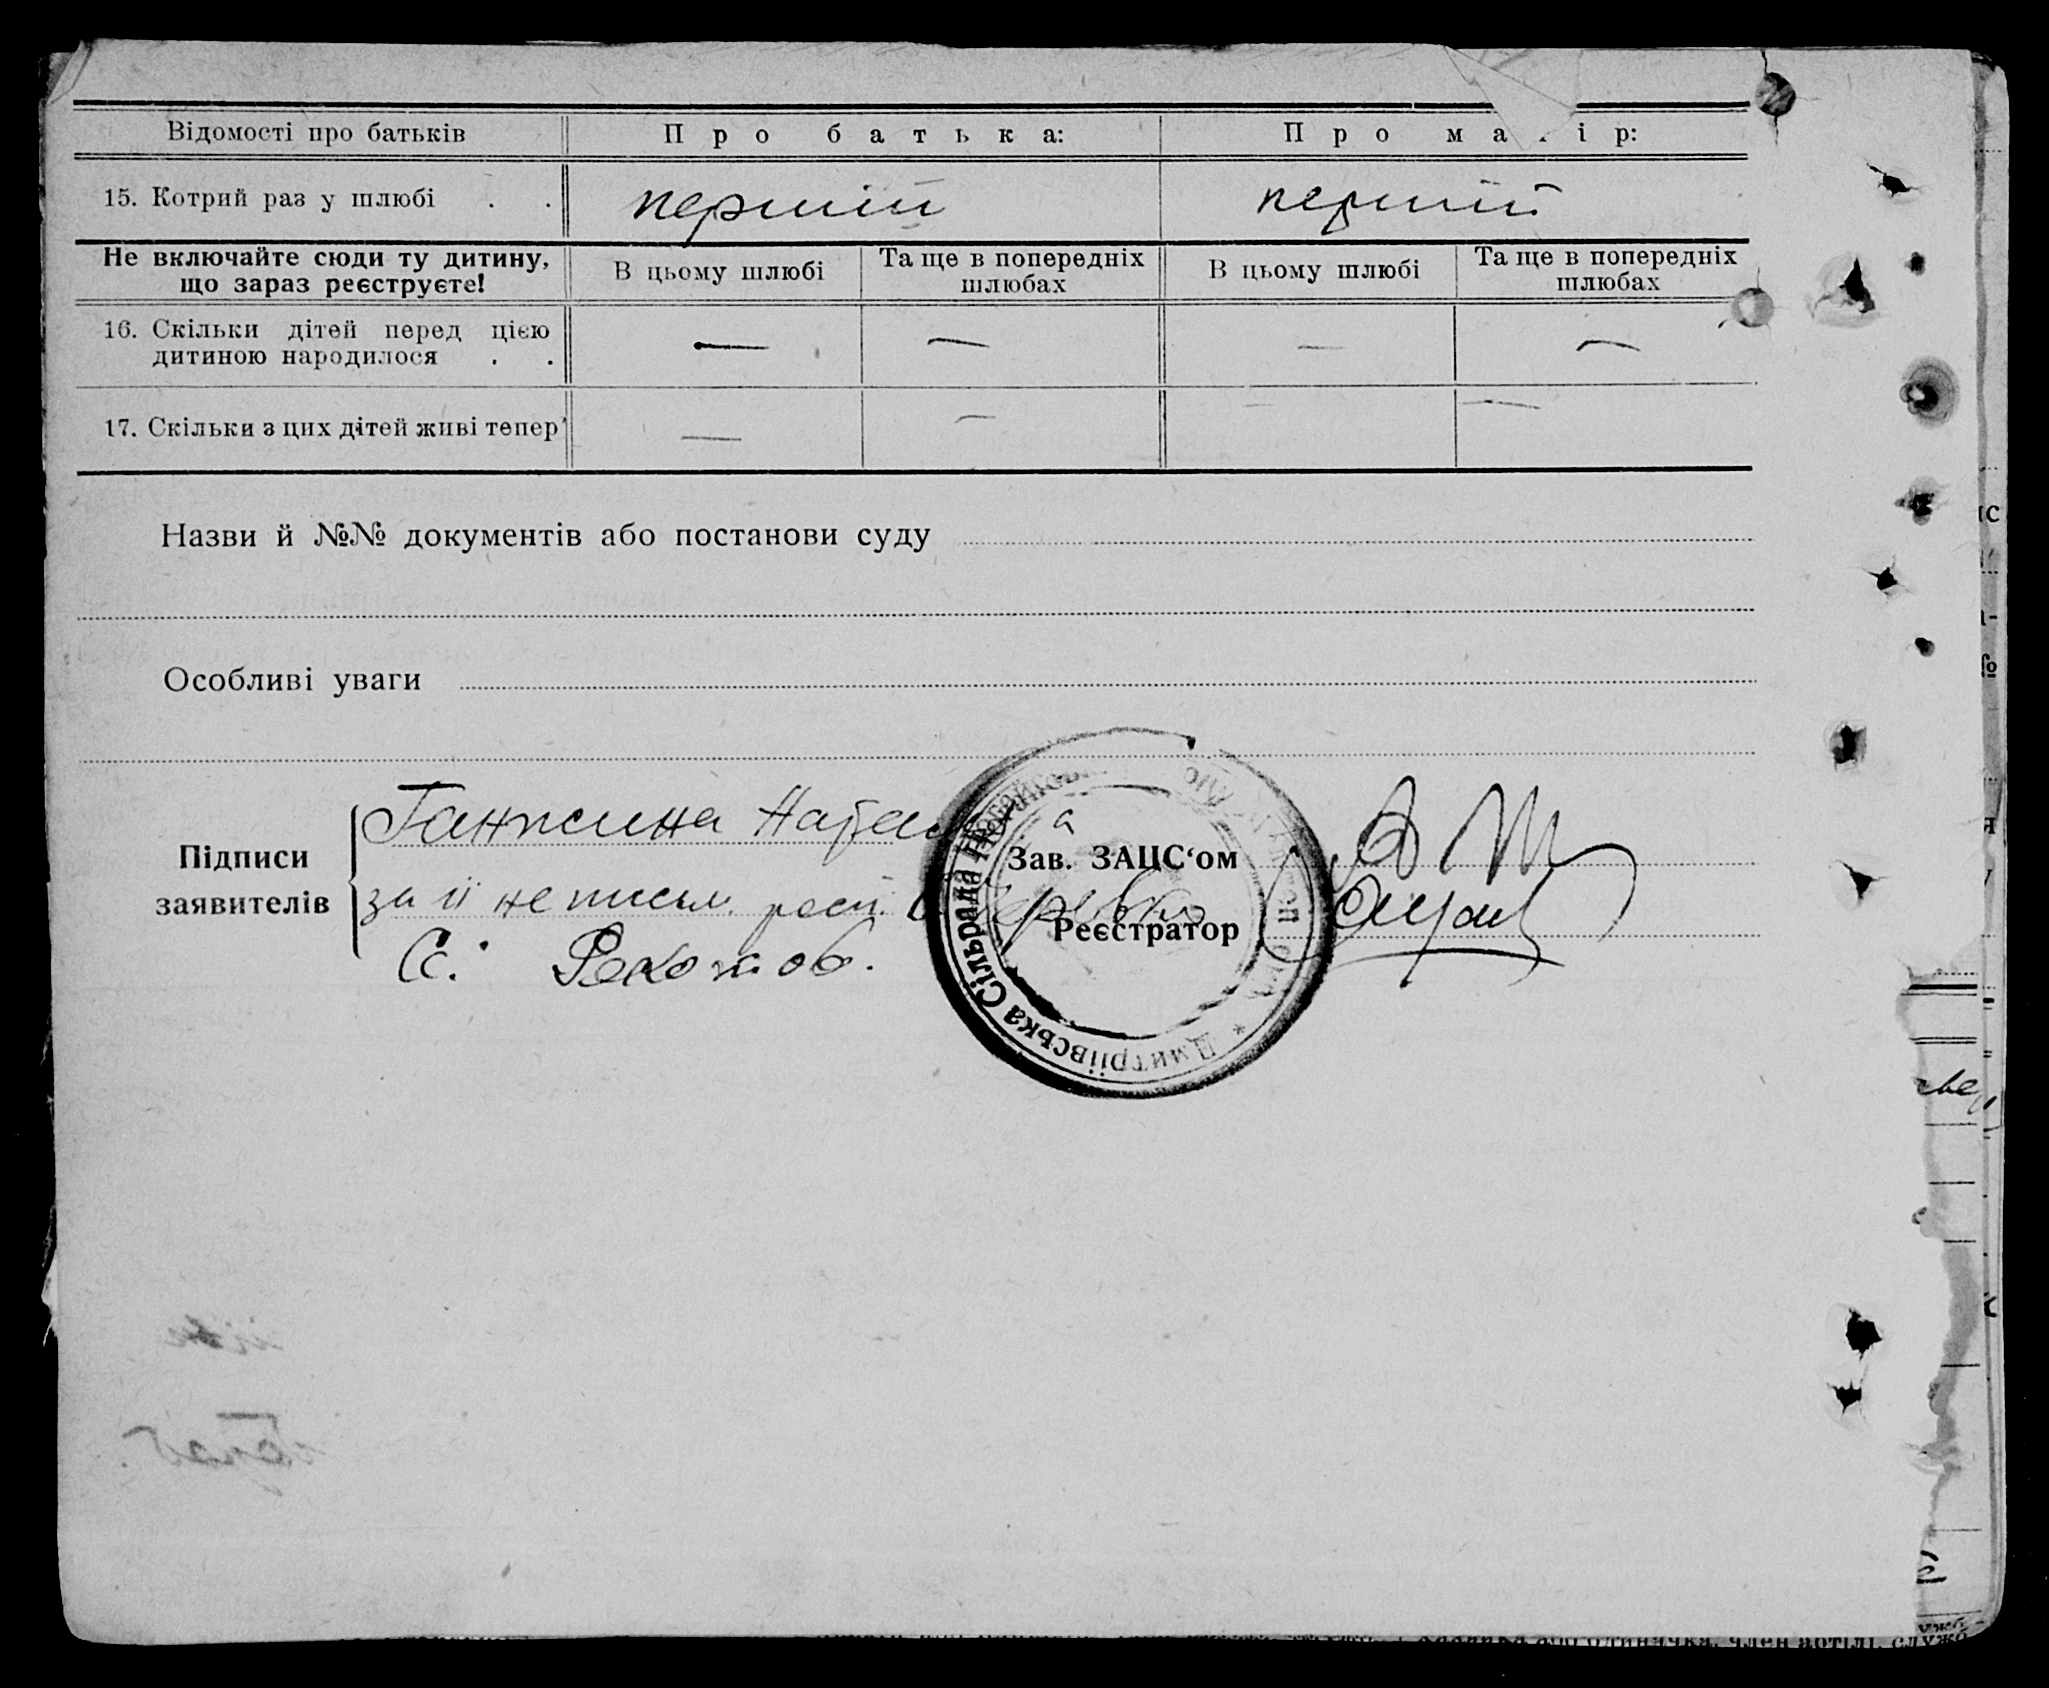 Відомості про батьків
Про батька:
Про ма і р:
15. Котрий раз у шлюбі . .
перший
перший
Не включайте сюди ту дитину,
що зараз реєструєте!
В цьому шлюбі
Та ще в попередніх
шлюбах
В цьому шлюбі
Та ще в попередніх
шлюбах
16. Скільки дітей перед цією
дитиною народилося . .
— — — —
17. Скільки з цих дітей живі тепер
— — — —
Назви й №№ документів або постанови суду
Особливі уваги
Підписи
заявителів
Ганжина
за її не письм. росп.
Зав. ЗАЦС‘ом
Реєстратор
* Дмитріївська Сільрада